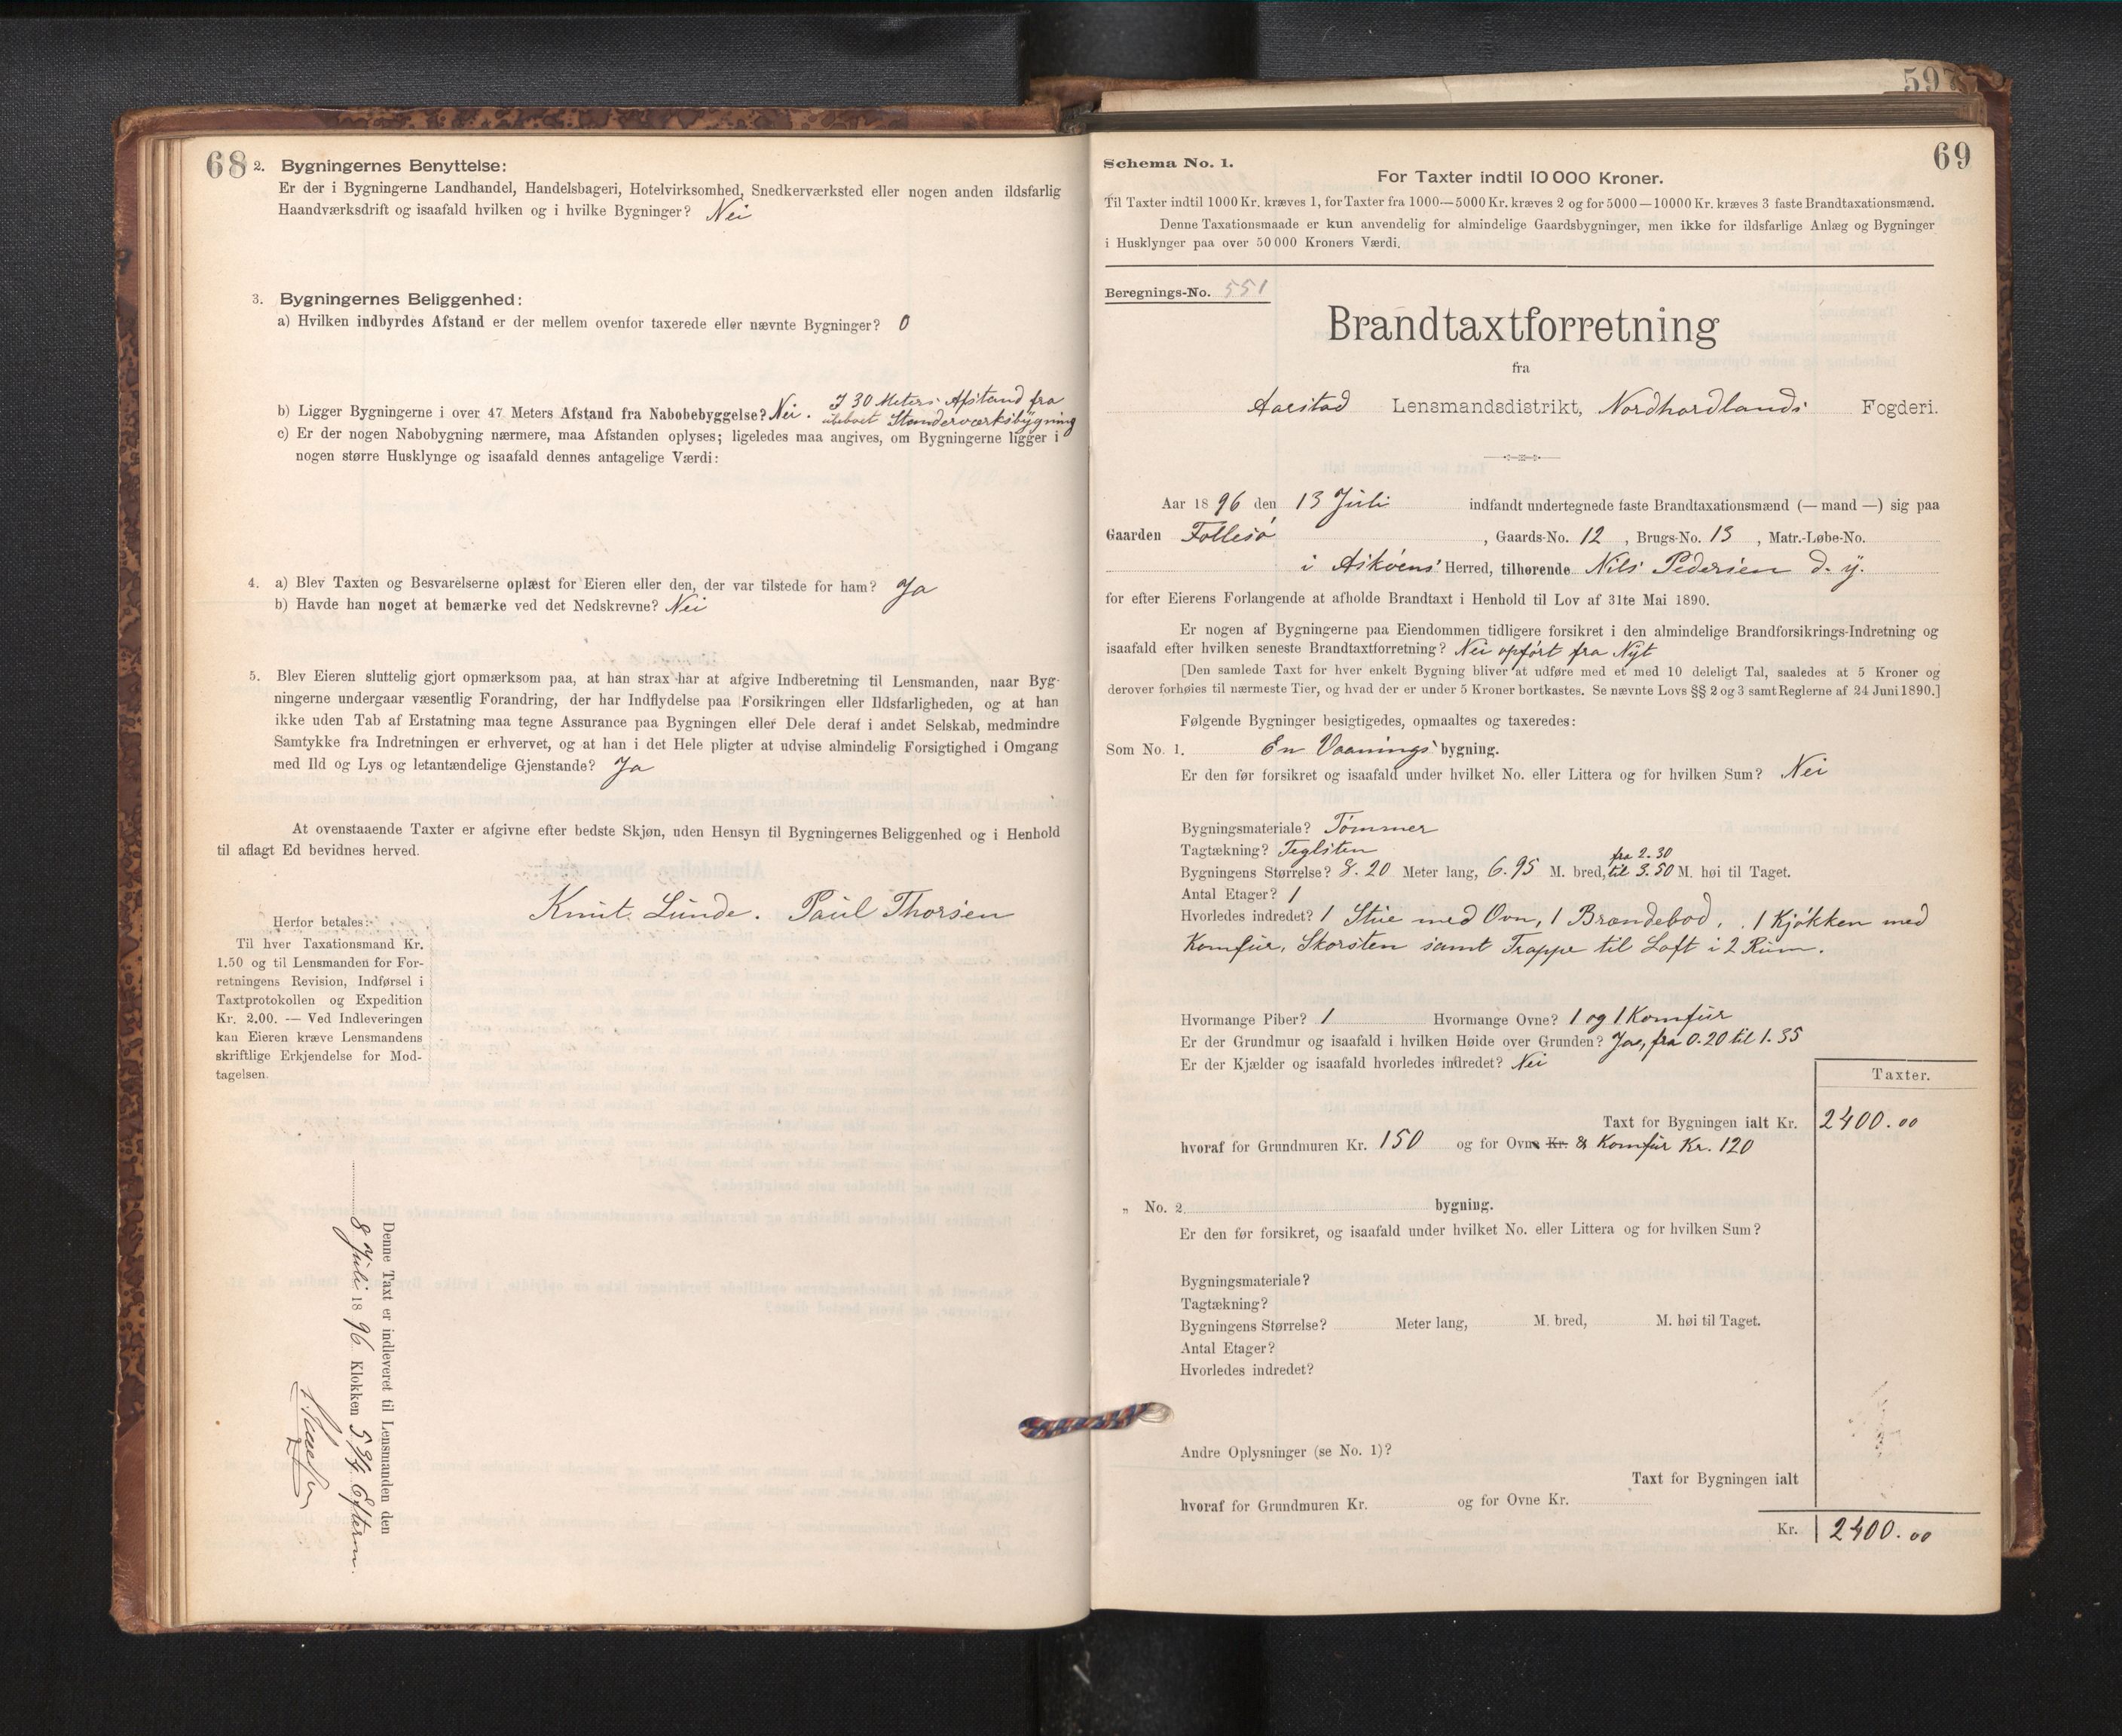 68
2. Bygningernes Benyttelse:
Er der i Bygningerne Landhandel, Handelsbageri, Hotelvirksomhed, Snedkerværksted eller nogen anden ildsfarlig
Haandværksdrift og isaafald hvilken og i hvilke Bygninger? Nei
3. Bygningernes Beliggenhed:
a) Hvilken indbyrdes Afstand er der mellem ovenfor taxerede eller nævnte Bygninger? 0
I 30 Meters Afstand fra
b) Ligger Bygningerne i over 47 Meters Afstand fra Nabobebyggelse? Nei. ubeboet Standerværksbygning
c) Er der nogen Nabobygning nærmere, maa Afstanden oplyses; ligeledes maa angives, om Bygningerne ligger i
nogen større Husklynge og isaafald dennes antagelige Værdi:
4. a) Blev Taxten og Besvarelserne oplæst for Eieren eller den, der var tilstede for ham? Ja
b) Havde han noget at bemærke ved det Nedskrevne? Nei
5. Blev Eieren sluttelig gjort opmærksom paa, at han strax har at afgive Indberetning til Lensmanden, naar Byg-
ningerne undergaar væsentlig Forandring, der har Indflydelse paa Forsikringen eller Ildsfarligheden, og at han
ikke uden Tab af Erstatning maa tegne Assurance paa Bygningen eller Dele deraf i andet Selskab, medmindre
Samtykke fra Indretningen er erhvervet, og at han i det Hele pligter at udvise almindelig Forsigtighed i Omgang
med Ild og Lys og letantændelige Gjenstande? Ja
At ovenstaaende Taxter er afgivne efter bedste Skjøn, uden Hensyn til Bygningernes Beliggenhed og i Henhold
til aflagt Ed bevidnes herved.
Knut Lunde. Paul Thorsen
Herfor betales:
Til hver Taxationsmand Kr.
1.50 og til Lensmanden for For-
retningens Revision, Indførsel i
Taxtprotokollen og Expedition
Kr. 2,00. — Ved Indleveringen
kan Eieren kræve Lensmandens
skriftlige Erkjendelse for Mod-
tagelsen.
Denne Taxt er indleveret til Lensmanden den
8 Juli 1896 Klokken 5 3/4 Efterm.
597
69
Schema No. 1.
For Taxter indtil 10 000 Kroner.
Til Taxter indtil 1000 Kr. kræves 1, for Taxter fra 1000—5000 Kr. kræves 2 og for 5000—10000 Kr. kræves 3 faste Brandtaxationsmænd.
Denne Taxationsmaade er kun anvendelig for almindelige Gaardsbygninger, men ikke for ildsfarlige Anlæg og Bygninger
i Husklynger paa over 50 000 Kroners Værdi.
Beregnings-No. 551
Brandtaxtforretning
fra
Aarstad Lensmandsdistrikt, Nordhordlands Fogderi.
Aar 1896 den 13 Juli indfandt undertegnede faste Brandtaxationsmænd (— mand —) sig paa
Gaarden Follesø, Gaards-No. 12, Brugs-No. 13, Matr.-Løbe-No.
i Askøens Herred, tilhørende Nils Pedersen d. y.
for efter Eierens Forlangende at afholde Brandtaxt i Henhold til Lov af 31te Mai 1890.
Er nogen af Bygningerne paa Eiendommen tidligere forsikret i den almindelige Brandforsikrings-Indretning og
isaafald efter hvilken seneste Brandtaxtforretning? Nei opført fra Nyt
[Den samlede Taxt for hver enkelt Bygning bliver at udføre med et med 10 deleligt Tal, saaledes at 5 Kroner og
derover forhøies til nærmeste Tier, og hvad der er under 5 Kroner bortkastes. Se nævnte Lovs §§ 2 og 3 samt Reglerne af 24 Juni 1890.]
Følgende Bygninger besigtigedes, opmaaltes og taxeredes:
Som No. 1. En Vaanings bygning.
Er den før forsikret og isaafald under hvilket No. eller Littera og for hvilken Sum? Nei
Bygningsmateriale? Tømmer
Tagtækning? Teglsten
fra 2.30
Bygningens Størrelse? 8.20 Meter lang, 6.95 M. bred, til 3.50 M. høi til Taget.
Antal Etager? 1
Hvorledes indredet? 1 Stue med Ovn, 1 Brændebod, 1 Kjøkken med
Komfur, Skorsten samt Trappe til Loft i 2 Rum.
Hvormange Piber? 1 Hvormange Ovne? 1 og 1 Komfur
Er der Grundmur og isaafald i hvilken Høide over Grunden? Ja, fra 0.20 til 1.35
Er der Kjælder og isaafald hvorledes indredet? Nei
Taxter.
Taxt for Bygningen ialt Kr. 2400.00
hvoraf for Grundmuren Kr. 150 og for Ovne Kr. & Komfur Kr. 120
„ No. 2 bygning.
Er den før forsikret, og isaafald under hvilket No. eller Littera og for hvilken Sum?
Bygningsmateriale?
Tagtækning?
Bygningens Størrelse? Meter lang, M. bred, M. høi til Taget.
Antal Etager?
Hvorledes indredet?
Andre Oplysninger (se No. 1)?
Taxt for Bygningen ialt
hvoraf for Grundmuren Kr. og for Ovne Kr.
Kr. 2400.00